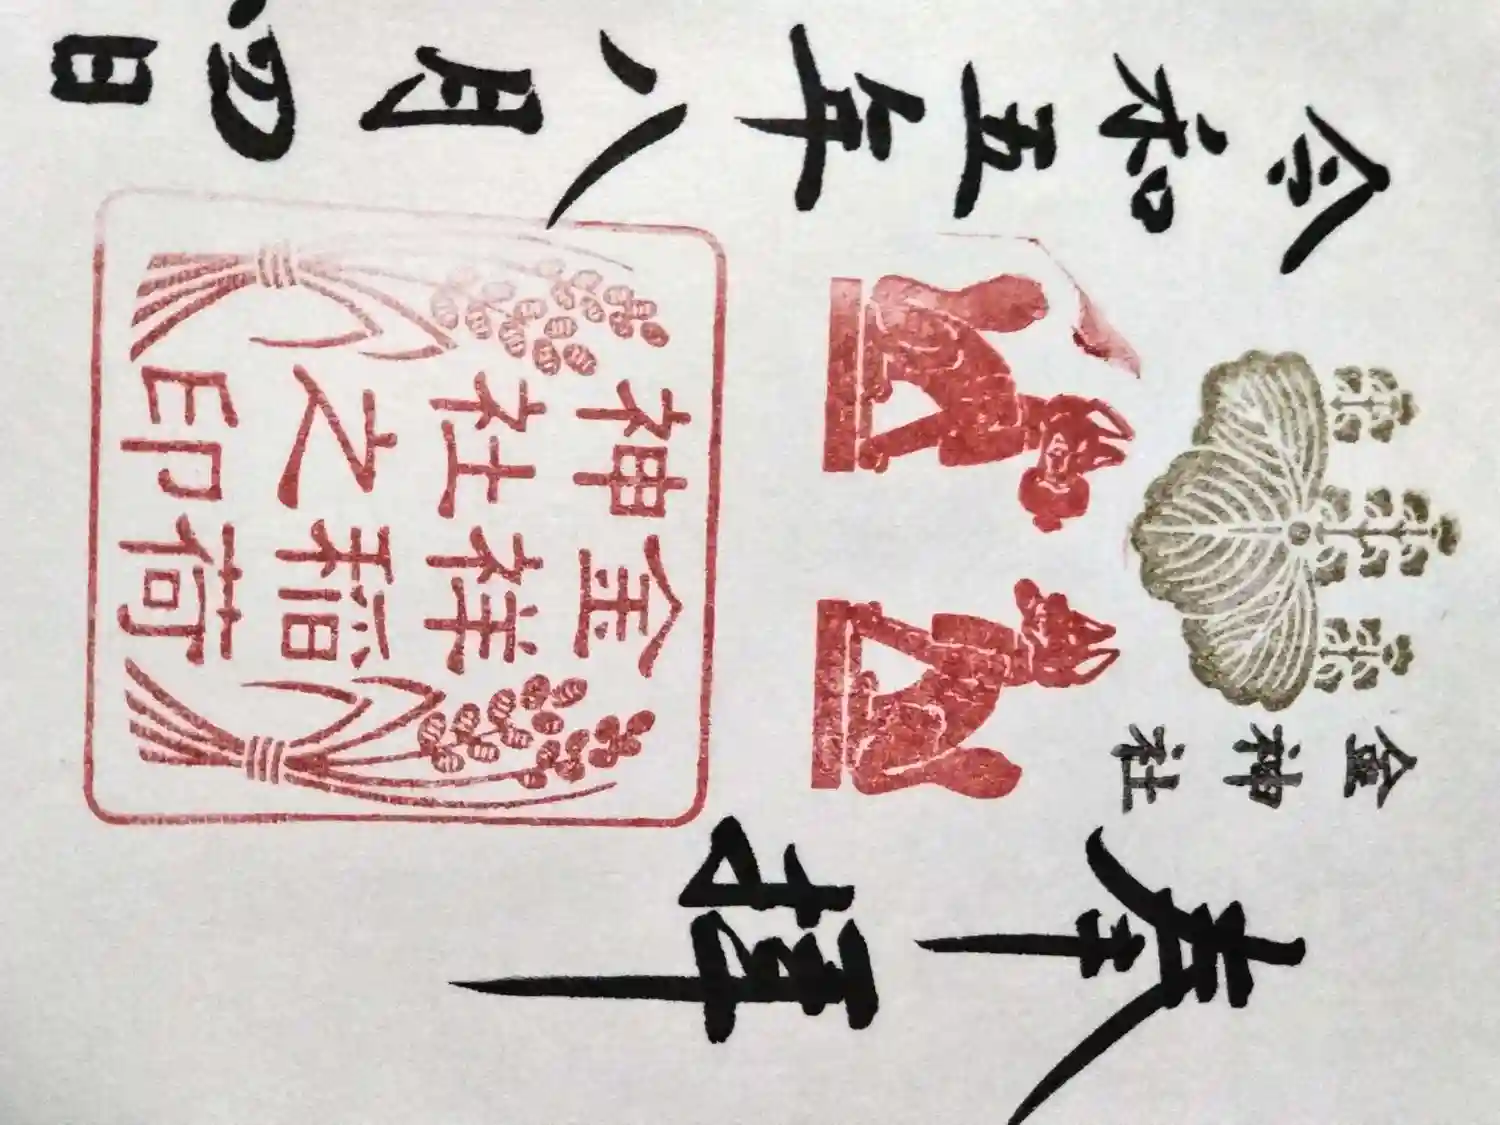 奉拝
金神社
金祥稲荷
神社之印
令和五年八月四日